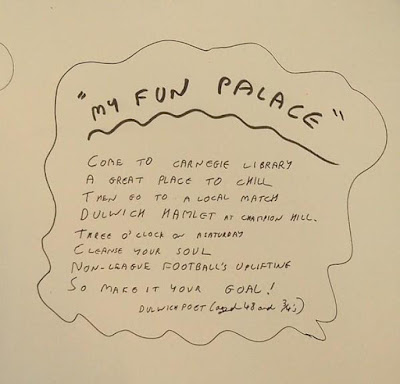 "MY FUN PALACE"
COME TO CARNEGIE LIBRARY
A GREAT PLACE TO CHILL
THEN GO TO A LOCAL MATCH
DULWICH HAMLET AT CHAMPION HILL.
THREE O'CLOCK ON A SATURDAY
CLEANSE YOUR SOUL
NON-LEAGUE FOOTBALL'S UPLIFTING
SO MAKE IT YOUR GOAL!
DULWICHPOET (aged 48 and 3/4's)